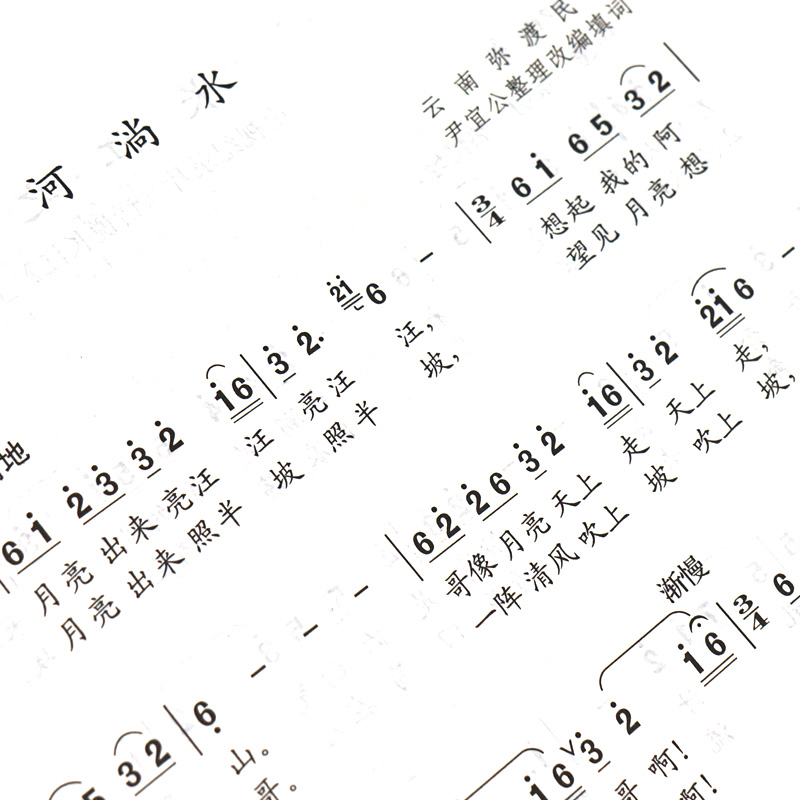 河 淌 水
云 南 弥 渡 民
尹宜公整理改编填词
地
6 1 2 3 3 2 1 6 | 3 2. 21 6 - | 3/4 6 1 6 5 3 2 |
月亮 出来 亮汪 汪 亮汪 汪， 想起 我的 阿
月亮 出来 照半 坡 照半 坡， 望见 月亮 想
3 2 | 6 - - - | 6 2 2 6 3 2 1 6 | 3 2 2 1 6 -
山。 哥像 月亮 天上 走 天上 走，
哥。 一阵 清风 吹上 坡 吹上 坡，
渐慢
5 1 6 3 2 1 6 | 3/4 6
哥 啊！
啊！